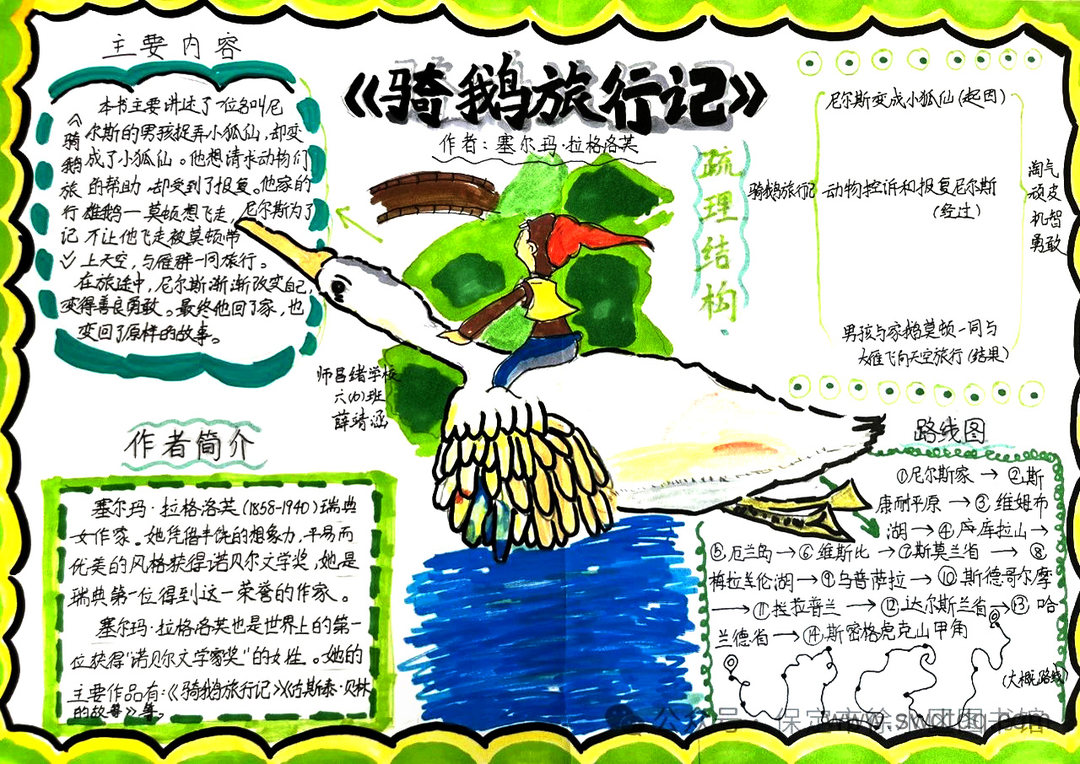 《骑鹅旅行记》
作者：塞尔玛·拉格洛芙
主要内容
《骑鹅旅行记》
本书主要讲述了一位名叫尼
尔斯的男孩捉弄小狐仙，却变
成了小狐仙。他想请求动物们
的帮助，却受到了报复。他家的
雄鹅—莫顿想飞走，尼尔斯为了
不让他飞走被莫顿带
上天空，与雁群一同旅行。
在旅途中，尼尔斯渐渐改变自己，
变得善良勇敢。最终他回了家，也
变回了原样的故事。
师吕绪学校
六(6)班
薛靖涵
作者简介
塞尔玛·拉格洛芙(1858-1940)瑞典
女作家。她凭借丰饶的想象力，平易而
优美的风格获得诺贝尔文学奖，她是
瑞典第一位得到这一荣誉的作家。
塞尔玛·拉格洛芙也是世界上的第一
位获得"诺贝尔文学家奖"的女性。她的
主要作品有：《骑鹅旅行记》《古斯泰·贝林
的故事》等。
疏理结构
尼尔斯变成小狐仙(起因)
骑鹅旅行记
动物控诉和报复尼尔斯
(经过)
男孩与家鹅莫顿一同与
大雁飞向天空旅行(结果)
淘气
顽皮
机智
勇敢
路线图
①尼尔斯家→②斯
康耐平原→③维姆布
湖→④卢库拉山→
⑤厄兰岛→⑥维斯比→⑦斯莫兰省→⑧
梅拉圭伦湖→⑨乌普萨拉→⑩斯德哥尔摩
→⑪拉拉普兰→⑫达尔斯兰省→⑬哈
兰德省→⑭斯密格虎克山甲角
(大概路线)
公众号·保定市徐
图书馆